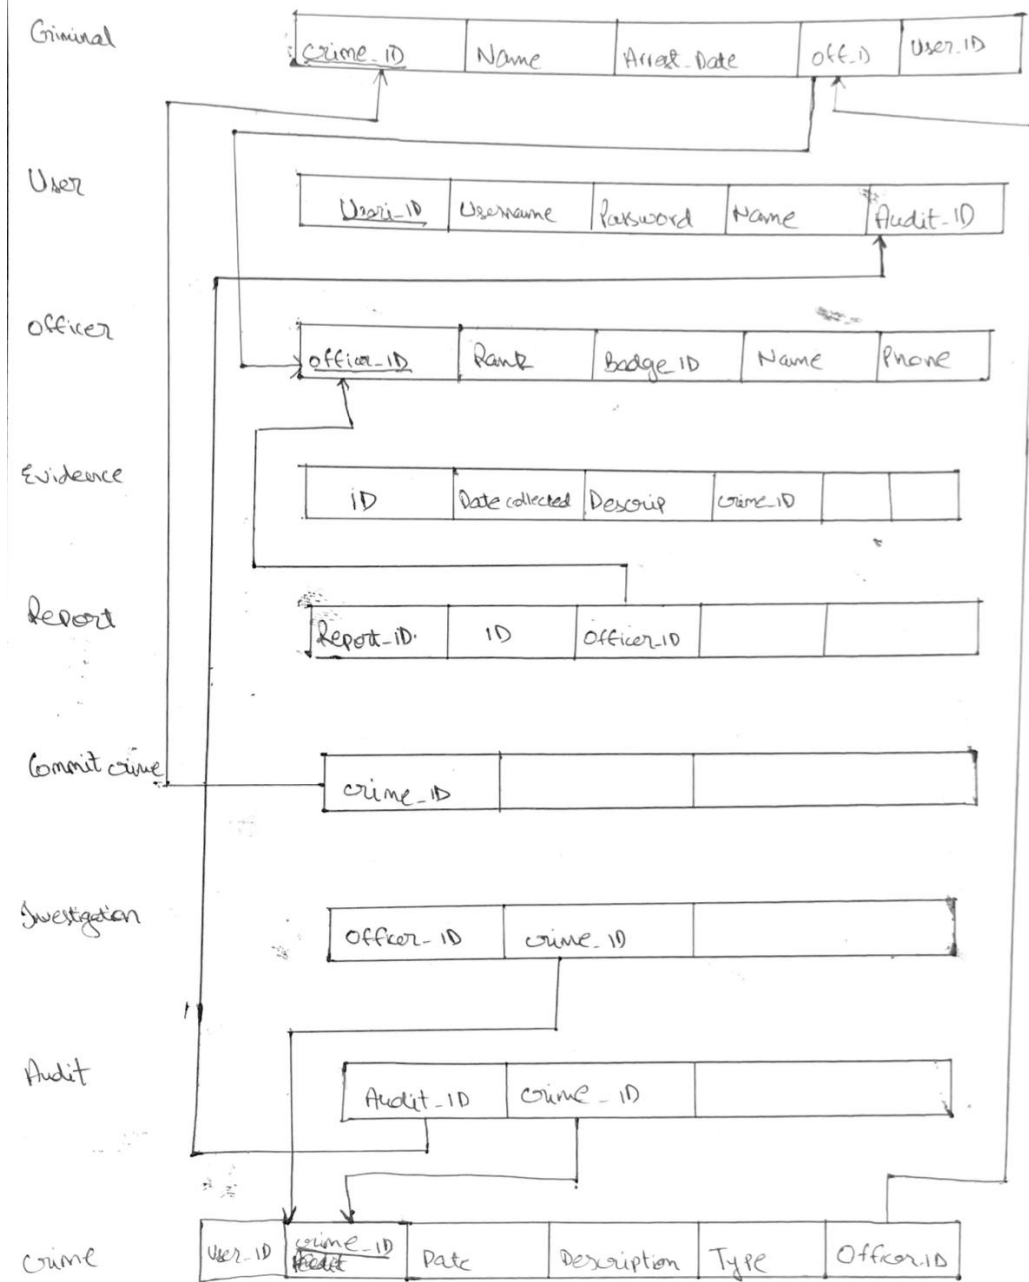 Criminal
crime_ID Name Arrest_Date Off_ID User_ID
User
User_ID Username Password Name Audit_ID
Officer
officer_ID Rank Badge_ID Name Phone
Evidence
ID Date collected Descrip crime_ID
Report
Report_ID. ID Officer_ID
Commit crime
crime_ID
Investigation
Officer_ID crime_ID
Audit
Audit_ID crime_ID
crime
User_ID crime_ID Date Description Type Officer_ID